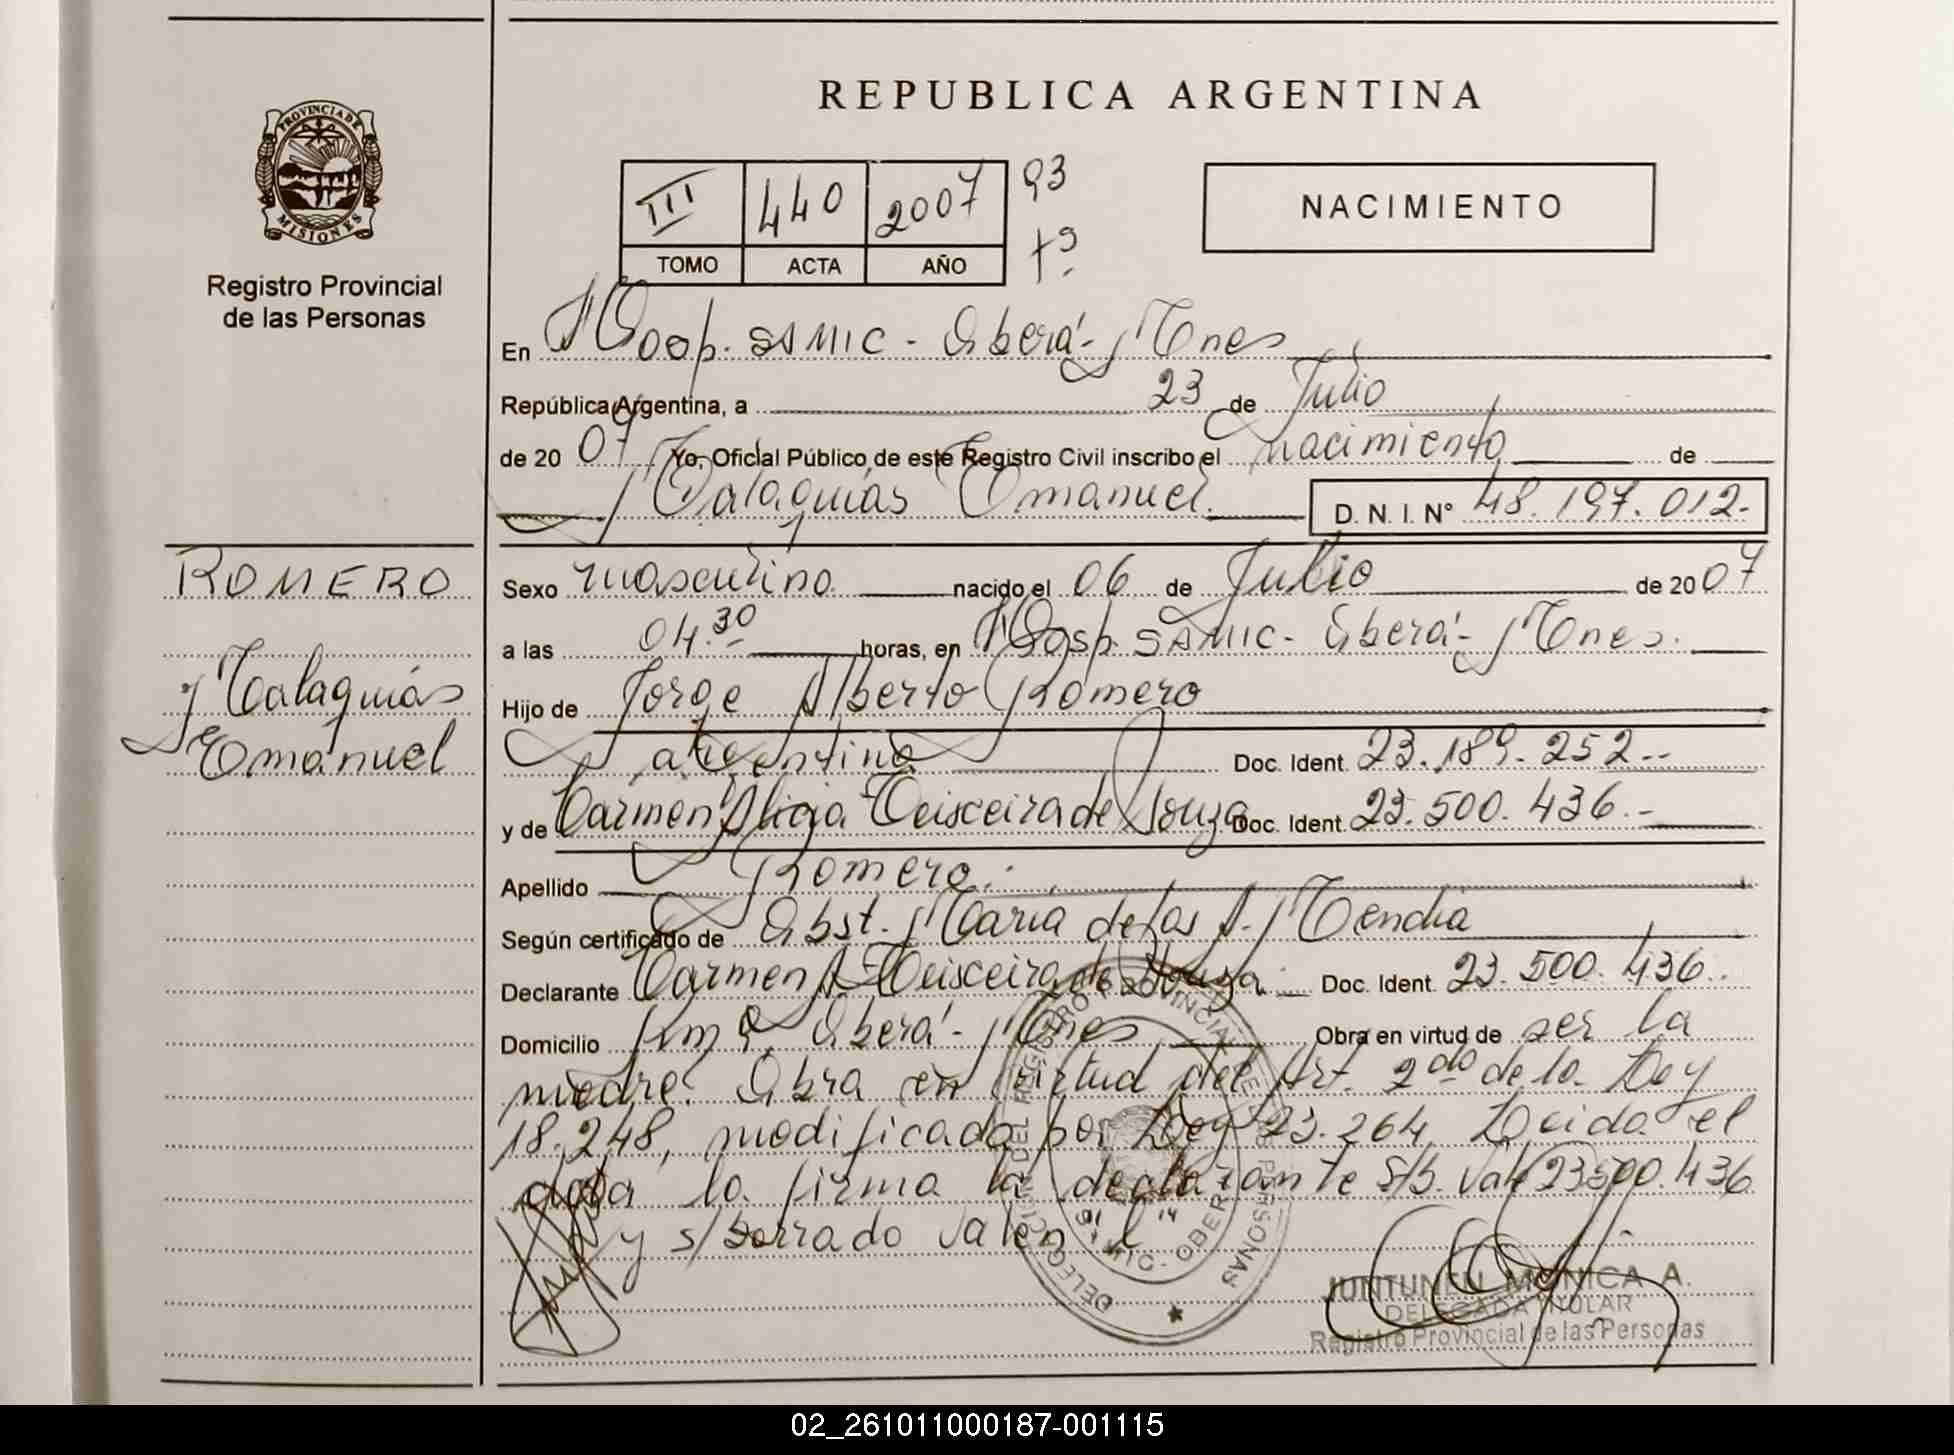 REPUBLICA ARGENTINA
PROVINCIA DE MISIONES
Registro Provincial
de las Personas
III 440 2007 93
TOMO ACTA AÑO fº
NACIMIENTO
En Hosp. SAMIC - Oberá - Mnes
República Argentina, a 23 de Julio
de 2007 Yo, Oficial Público de este Registro Civil inscribo el nacimiento de
Malaquías Emanuel. D. N. I. N° 48.197.012.-
ROMERO
Malaquías
Emanuel
Sexo masculino nacido el 06 de Julio de 2007
a las 04.30 horas, en Hosp. SAMIC - Oberá - Mnes.
Hijo de Jorge Alberto Romero
argentino Doc. Ident. 23.189.252.-
y de Carmen Alicia Teisceira de Souza Doc. Ident. 23.500.436.-
Apellido Romero.
Según certificado de Obst. María de los A. Mendia
Declarante Carmen A. Teisceira de Souza Doc. Ident. 23.500.436.
Domicilio Km 9, Oberá - Mnes Obra en virtud de ser la
madre. Obra en virtud del Art. 2do de la Ley
18.248, modificada por Ley 23.264. Leida el
acta la firma la declarante S/B. Vale 23500.436
y s/borrado valen
DELEGACION DEL REGISTRO PROVINCIAL DE LAS PERSONAS
SAMIC - OBERA
JUNTUNEN MONICA A.
DELEGADA TITULAR
Registro Provincial de las Personas
02_261011000187-001115